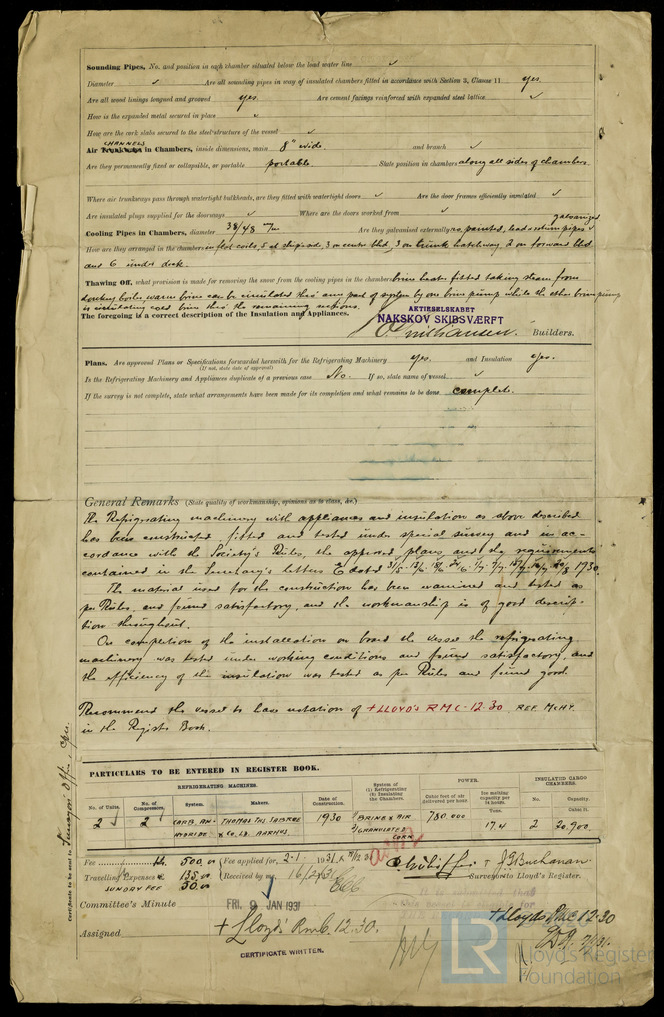 Sounding Pipes, No. and position in each chamber situated below the load water line ✓
Diameter ✓ Are all sounding pipes in way of insulated chambers fitted in accordance with Section 3, Clause 11 yes.
Are all wood linings tongued and grooved yes. Are cement facings reinforced with expanded steel lattice ✓
How is the expanded metal secured in place ✓
How are the cork slabs secured to the steel structure of the vessel ✓
CHANNELS
Air Trunkways in Chambers, inside dimensions, main 8" wide. and branch ✓
Are they permanently fixed or collapsible, or portable portable. State position in chambers along all sides of chambers.
Where air trunkways pass through watertight bulkheads, are they fitted with watertight doors ✓ Are the door frames efficiently insulated ✓
Are insulated plugs supplied for the doorways ✓ Where are the doors worked from ✓
galvanized
Cooling Pipes in Chambers, diameter 38/48 m/m Are they galvanised externally no, painted, lead & return pipes ✓
How are they arranged in the chambers in flat coils, 5 at ship side, 3 on centre bhd, 3 on trunk hatchway 2 on forward bhd
and 6 under deck.
Thawing Off, what provision is made for removing the snow from the cooling pipes in the chambers brine heater fitted taking steam from
donkey boiler, warm brine can be circulated thro' one part of system by one brine pump while the other brine pump
is circulating cold brine thro' the remaining sections.
The foregoing is a correct description of the Insulation and Appliances.
AKTIESELSKABET
NAKSKOV SKIBSVÆRFT
Builders.
Plans. Are approved Plans or Specifications forwarded herewith for the Refrigerating Machinery yes. and Insulation yes.
(If not, state date of approval)
Is the Refrigerating Machinery and Appliances duplicate of a previous case No. If so, state name of vessel ✓
If the survey is not complete, state what arrangements have been made for its completion and what remains to be done complete.
General Remarks (State quality of workmanship, opinions as to class, &c.)
The Refrigerating machinery with appliances and insulation as above described
has been constructed, fitted and tested under special survey and in ac-
cordance with the Society's Rules, the approved plans, and the requirements
contained in the Secretary's letters E dated 1930.
The material used for the construction has been examined and tested as
per Rules, and found satisfactory, and the workmanship is of good descrip-
tion throughout.
On completion of the installation on board the vessel the refrigerating
machinery was tested under working conditions and found satisfactory, and
the efficiency of the insulation was tested as per Rules and found good.
Recommend the vessel to have notation of + LLOYD'S R.M.C. 12.30 REF. MCHY.
in the Register Book.
Certificate to be sent to Surveyors Office, Cpn.
PARTICULARS TO BE ENTERED IN REGISTER BOOK.
REFRIGERATING MACHINES. System of (1) Refrigerating (2) Insulating the Chambers. POWER. INSULATED CARGO CHAMBERS.
No. of Units. No. of Compressors. System. Makers. Date of Construction. Cubic feet of air delivered per hour Ice melting capacity per 24 hours. Tons. No. Capacity. Cubic ft.
2 2 CARB. AN- THOMAS THS SABROE 1930 1/ BRINE & AIR 780.000 17.4 2 20,900.
HYDRIDE & CO. LD. AARHUS 2/ GRANULATED
CORK
Fee Kr. 500.00 Fee applied for, 2.1.1931
Travelling Expenses 135.00 Received by me, 16/2/31
SUNDAY FEE 50.00
J.G. Buchanan
Surveyor to Lloyd's Register.
Committee's Minute FRI. 9 JAN 1931
Assigned + Lloyd's RMC. 12.30.
CERTIFICATE WRITTEN.
+ Lloyds RMC 12.30
LR
Lloyd's Register
Foundation